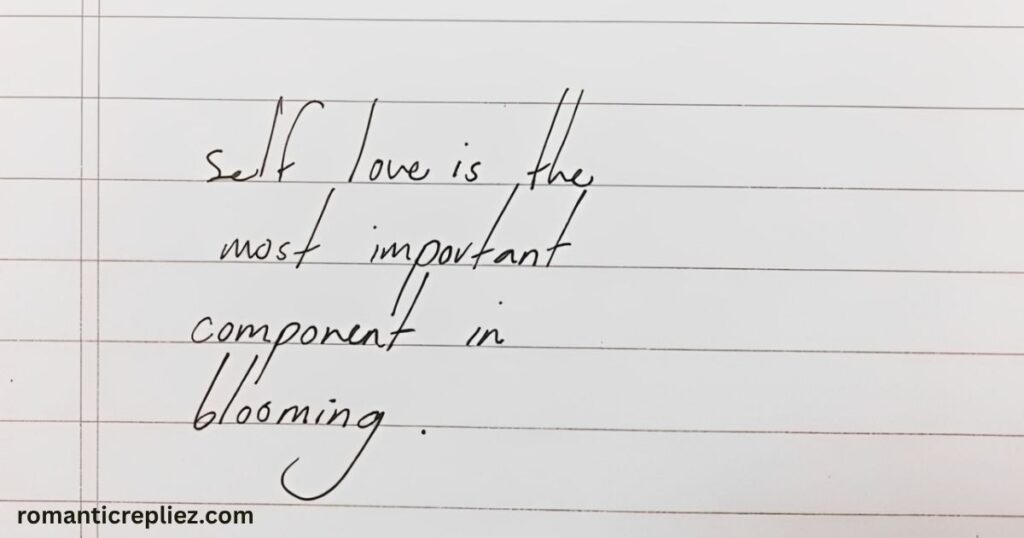 self love is the
most important
component in
blooming.
romanticrepliez.com